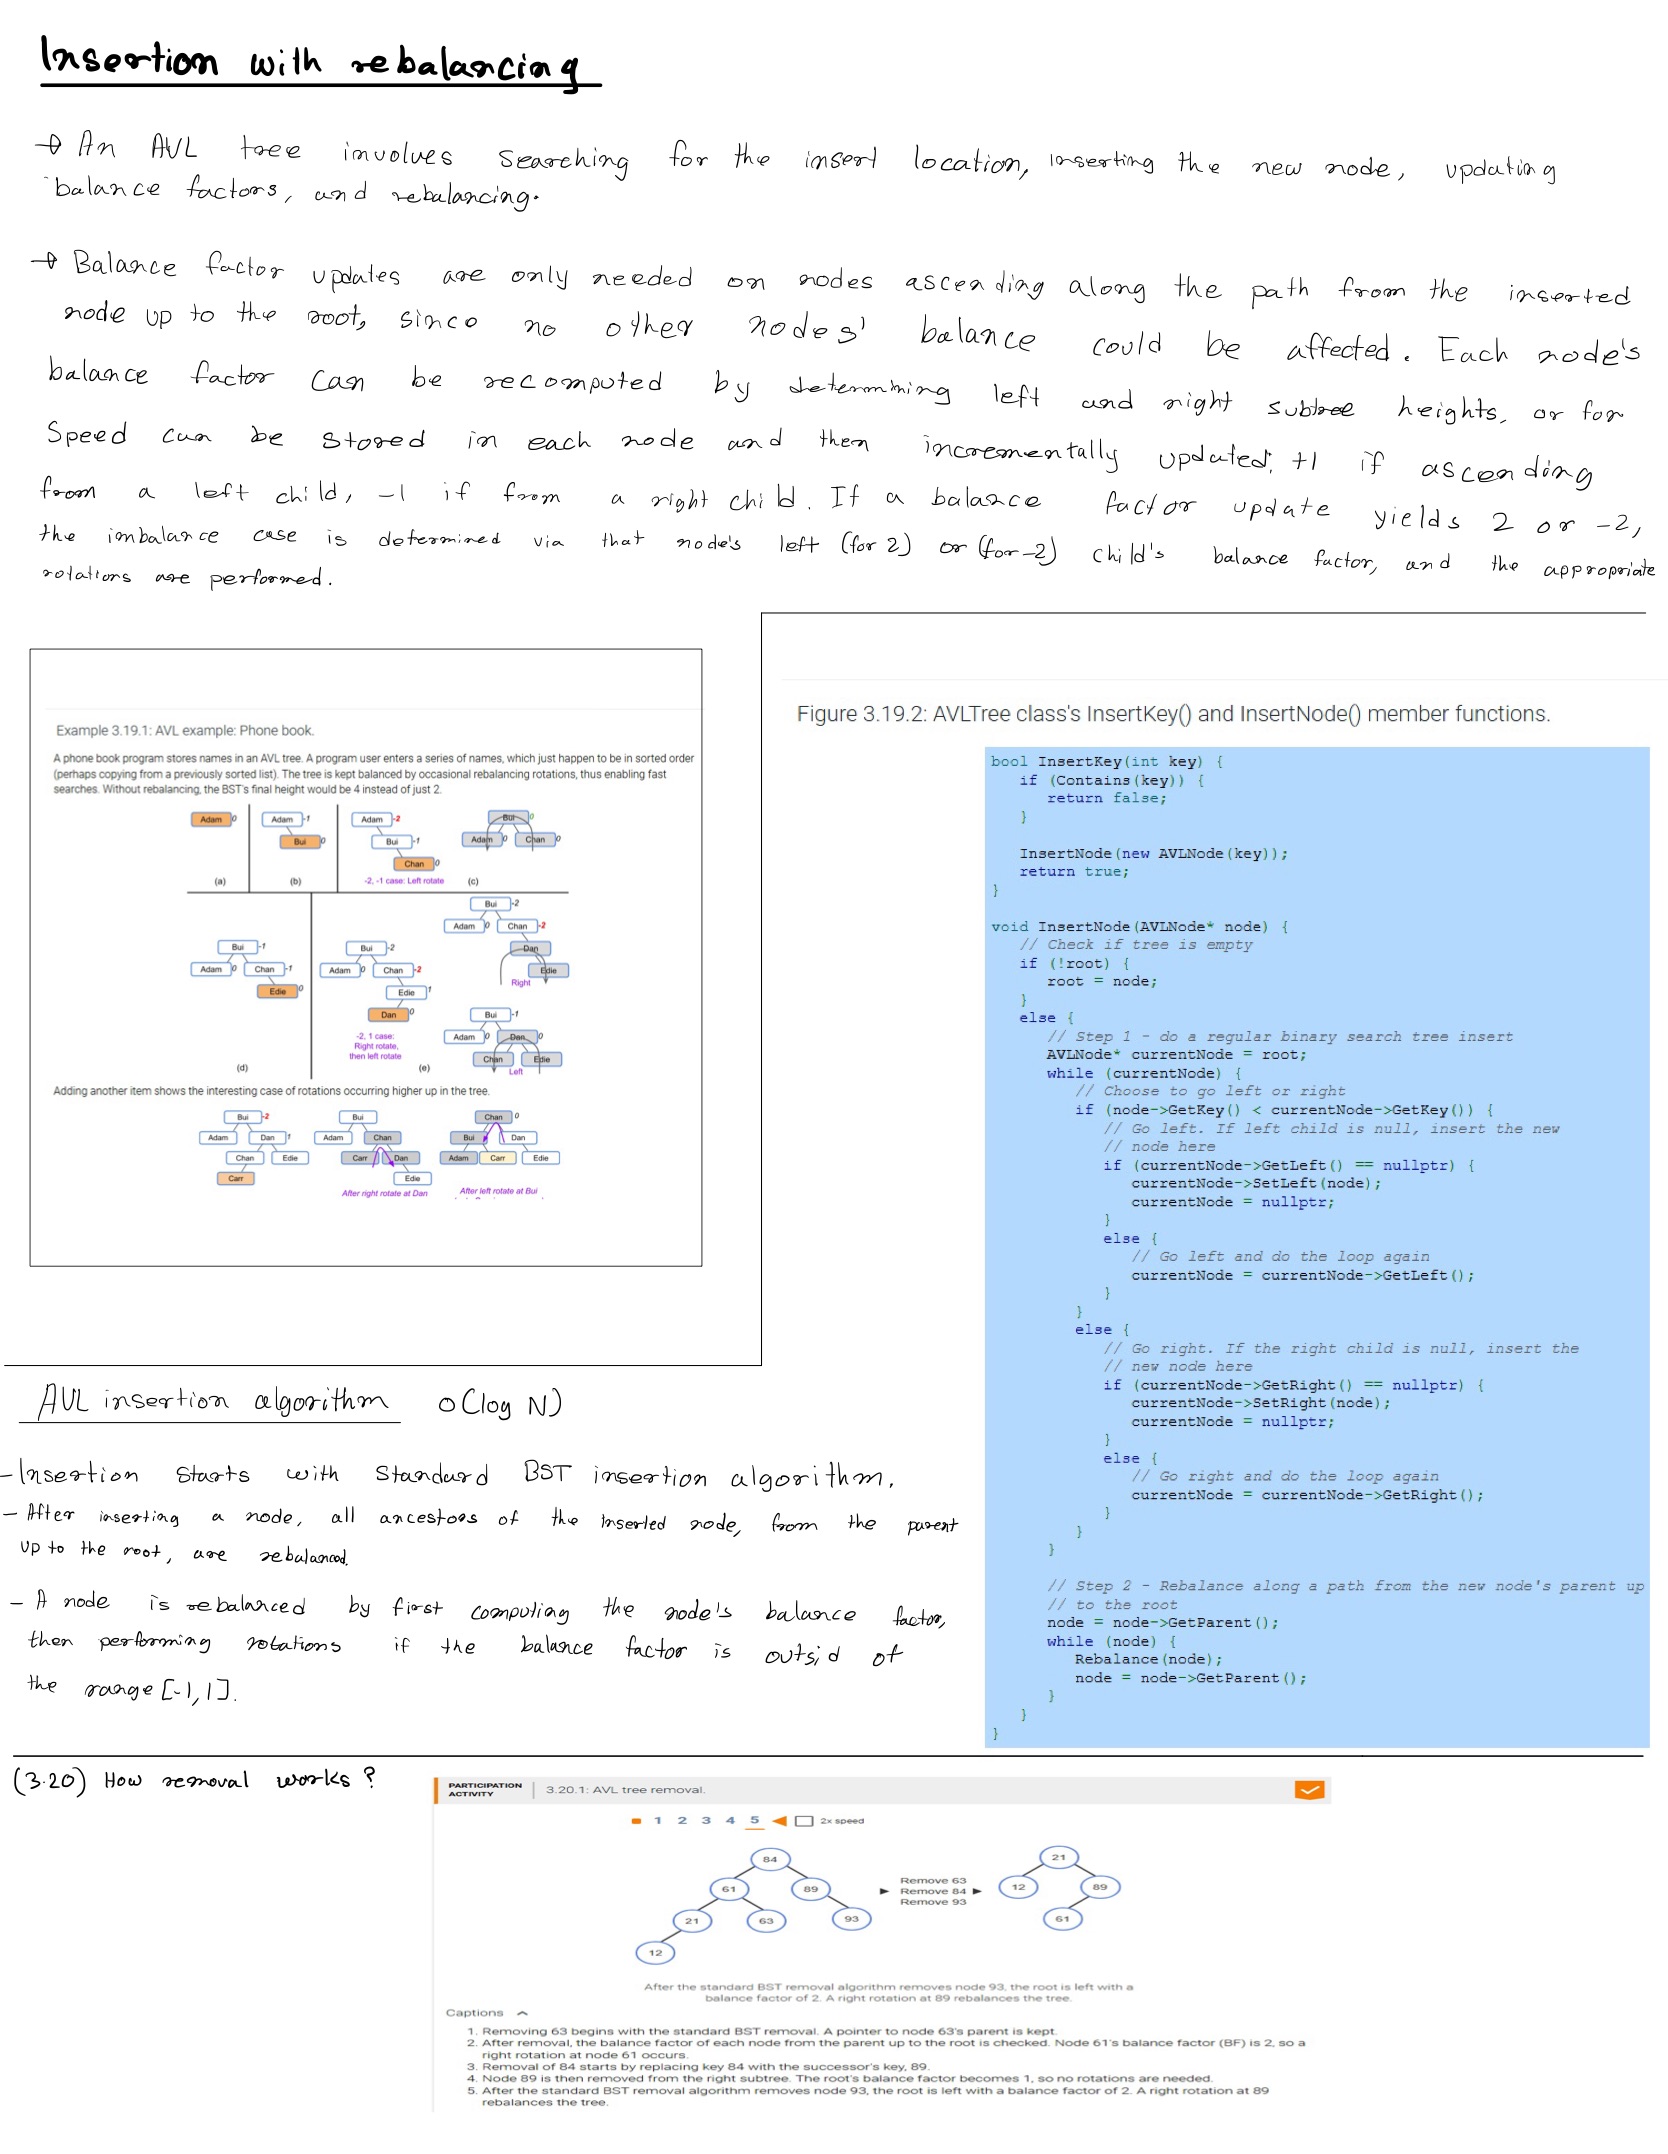 Insertion with rebalancing
→ An AVL tree involves searching for the insert location, inserting the new node, updating
balance factors, and rebalancing.
→ Balance factor updates are only needed on nodes ascending along the path from the inserted
node up to the root, since no other nodes' balance could be affected. Each node's
balance factor can be recomputed by determining left and right subtree heights, or for
Speed can be stored in each node and then incrementally updated; +1 if ascending
from a left child, -1 if from a right child. If a balance factor update yields 2 or -2,
the imbalance case is determined via that node's left (for 2) or (for -2) child's balance factor, and the appropriate
rotations are performed.
Example 3.19.1: AVL example: Phone book.
A phone book program stores names in an AVL tree. A program user enters a series of names, which just happen to be in sorted order
(perhaps copying from a previously sorted list). The tree is kept balanced by occasional rebalancing rotations, thus enabling fast
searches. Without rebalancing, the BST's final height would be 4 instead of just 2.
Adam 0
Adam -1
Bui 0
Adam -2
Bui -1
Chan 0
Bui 0
Adam 0 Chan 0
(a) (b) -2, -1 case: Left rotate (c)
Bui -1
Adam 0 Chan -1
Edie 0
(d)
Bui -2
Adam 0 Chan -2
Edie 1
Dan 0
-2, 1 case:
Right rotate,
then left rotate
(e)
Bui -2
Adam 0 Chan -2
Dan
Edie
Right
Bui -1
Adam 0 Dan 0
Chan Edie
Left
Adding another item shows the interesting case of rotations occurring higher up in the tree.
Bui -2
Adam Dan 1
Chan Edie
Carr
Bui
Adam Chan
Carr Dan
Edie
After right rotate at Dan
Chan 0
Bui Dan
Adam Carr Edie
After left rotate at Bui
Figure 3.19.2: AVLTree class's InsertKey() and InsertNode() member functions.
bool InsertKey(int key) {
if (Contains(key)) {
return false;
}
InsertNode(new AVLNode(key));
return true;
}
void InsertNode(AVLNode* node) {
// Check if tree is empty
if (!root) {
root = node;
}
else {
// Step 1 - do a regular binary search tree insert
AVLNode* currentNode = root;
while (currentNode) {
// Choose to go left or right
if (node->GetKey() < currentNode->GetKey()) {
// Go left. If left child is null, insert the new
// node here
if (currentNode->GetLeft() == nullptr) {
currentNode->SetLeft(node);
currentNode = nullptr;
}
else {
// Go left and do the loop again
currentNode = currentNode->GetLeft();
}
}
else {
// Go right. If the right child is null, insert the
// new node here
if (currentNode->GetRight() == nullptr) {
currentNode->SetRight(node);
currentNode = nullptr;
}
else {
// Go right and do the loop again
currentNode = currentNode->GetRight();
}
}
}
// Step 2 - Rebalance along a path from the new node's parent up
// to the root
node = node->GetParent();
while (node) {
Rebalance(node);
node = node->GetParent();
}
}
}
AVL insertion algorithm O(log N)
-Insertion starts with standard BST insertion algorithm.
- After inserting a node, all ancestors of the inserted node, from the parent
up to the root, are rebalanced.
- A node is rebalanced by first computing the node's balance factor,
then performing rotations if the balance factor is outsid of
the range [-1,1].
(3.20) How removal works?
PARTICIPATION
ACTIVITY
3.20.1: AVL tree removal.
1 2 3 4 5 2x speed
84
61 89
21 63 93
12
Remove 63
Remove 84
Remove 93
21
12 89
61
After the standard BST removal algorithm removes node 93, the root is left with a
balance factor of 2. A right rotation at 89 rebalances the tree.
Captions
1. Removing 63 begins with the standard BST removal. A pointer to node 63's parent is kept.
2. After removal, the balance factor of each node from the parent up to the root is checked. Node 61's balance factor (BF) is 2, so a
right rotation at node 61 occurs.
3. Removal of 84 starts by replacing key 84 with the successor's key, 89.
4. Node 89 is then removed from the right subtree. The root's balance factor becomes 1, so no rotations are needed.
5. After the standard BST removal algorithm removes node 93, the root is left with a balance factor of 2. A right rotation at 89
rebalances the tree.